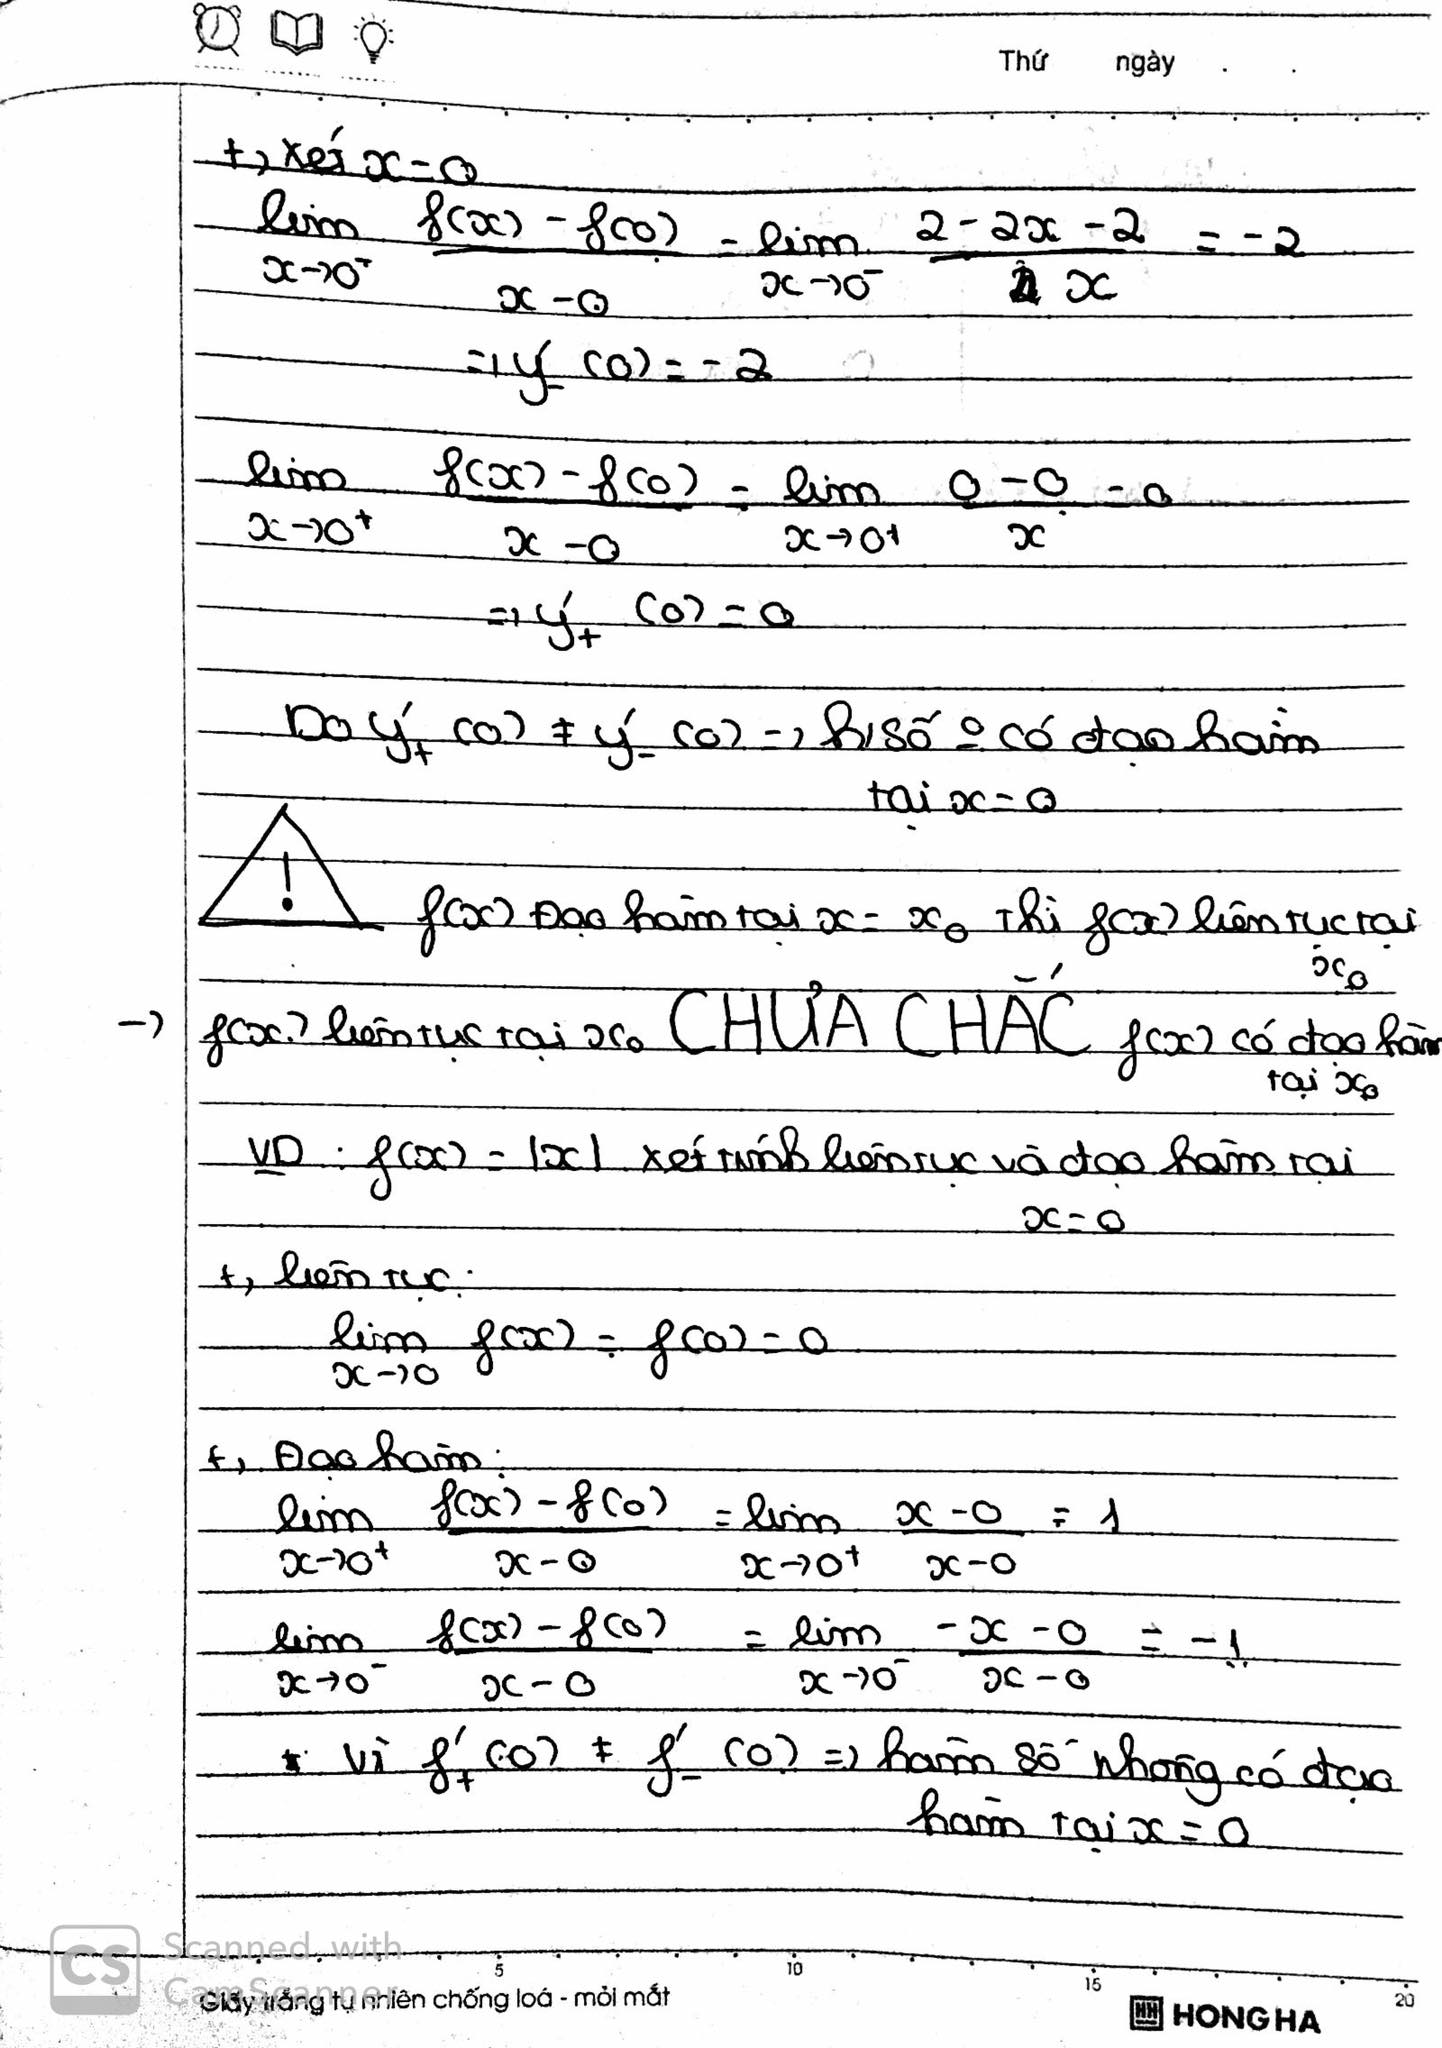 Thứ ngày . .
+, xét x = 0
lim f(x) - f(0) = lim 2 - 2x - 2 = -2
x→0⁻ x - 0 x→0⁻ x
=> y'₋ (0) = -2
lim f(x) - f(0) = lim 0 - 0 = 0
x→0⁺ x - 0 x→0⁺ x
=> y'₊ (0) = 0
Do y'₊ (0) ≠ y'₋ (0) => h/số o có đạo hàm
tại x = 0
! f(x) Đạo hàm tại x = x₀ thì f(x) liên tục tại
x₀
→ f(x) liên tục tại x₀ CHƯA CHẮC f(x) có đạo hàm
tại x₀
VD : f(x) = |x| xét tính liên tục và đạo hàm tại
x = 0
+, liên tục:
lim f(x) = f(0) = 0
x→0
+, Đạo hàm:
lim f(x) - f(0) = lim x - 0 = 1
x→0⁺ x - 0 x→0⁺ x - 0
lim f(x) - f(0) = lim -x - 0 = -1
x→0⁻ x - 0 x→0⁻ x - 0
* Vì f'₊ (0) ≠ f'₋ (0) => hàm số không có đạo
hàm tại x = 0
CS Scanned with
CamScanner
5 10 15 20
Giấy trắng tự nhiên chống loá - mỏi mắt
HH HONG HA